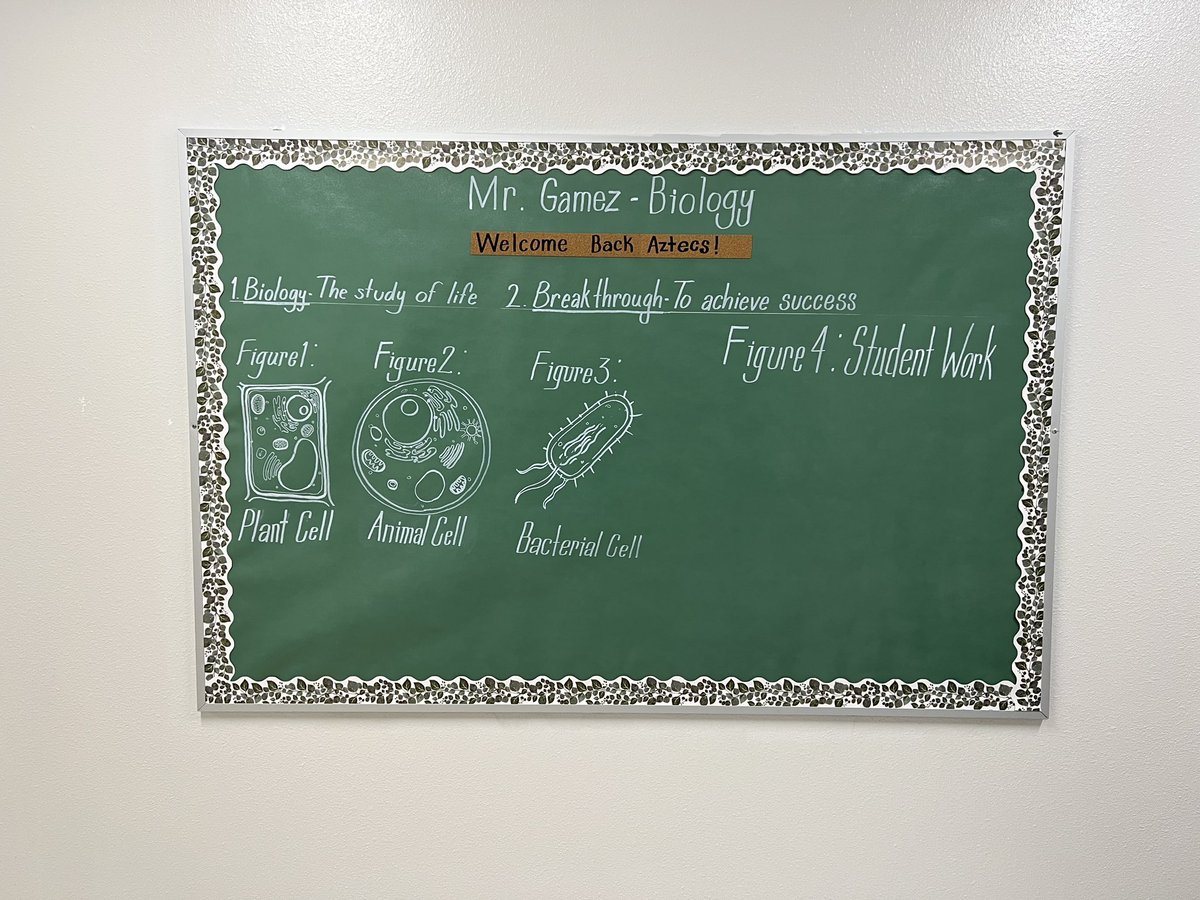 Mr. Gamez - Biology
Welcome Back Aztecs!
1. Biology - The study of life 2. Breakthrough - To achieve success
Figure 1: Figure 2: Figure 3: Figure 4: Student Work
Plant Cell Animal Cell Bacterial Cell